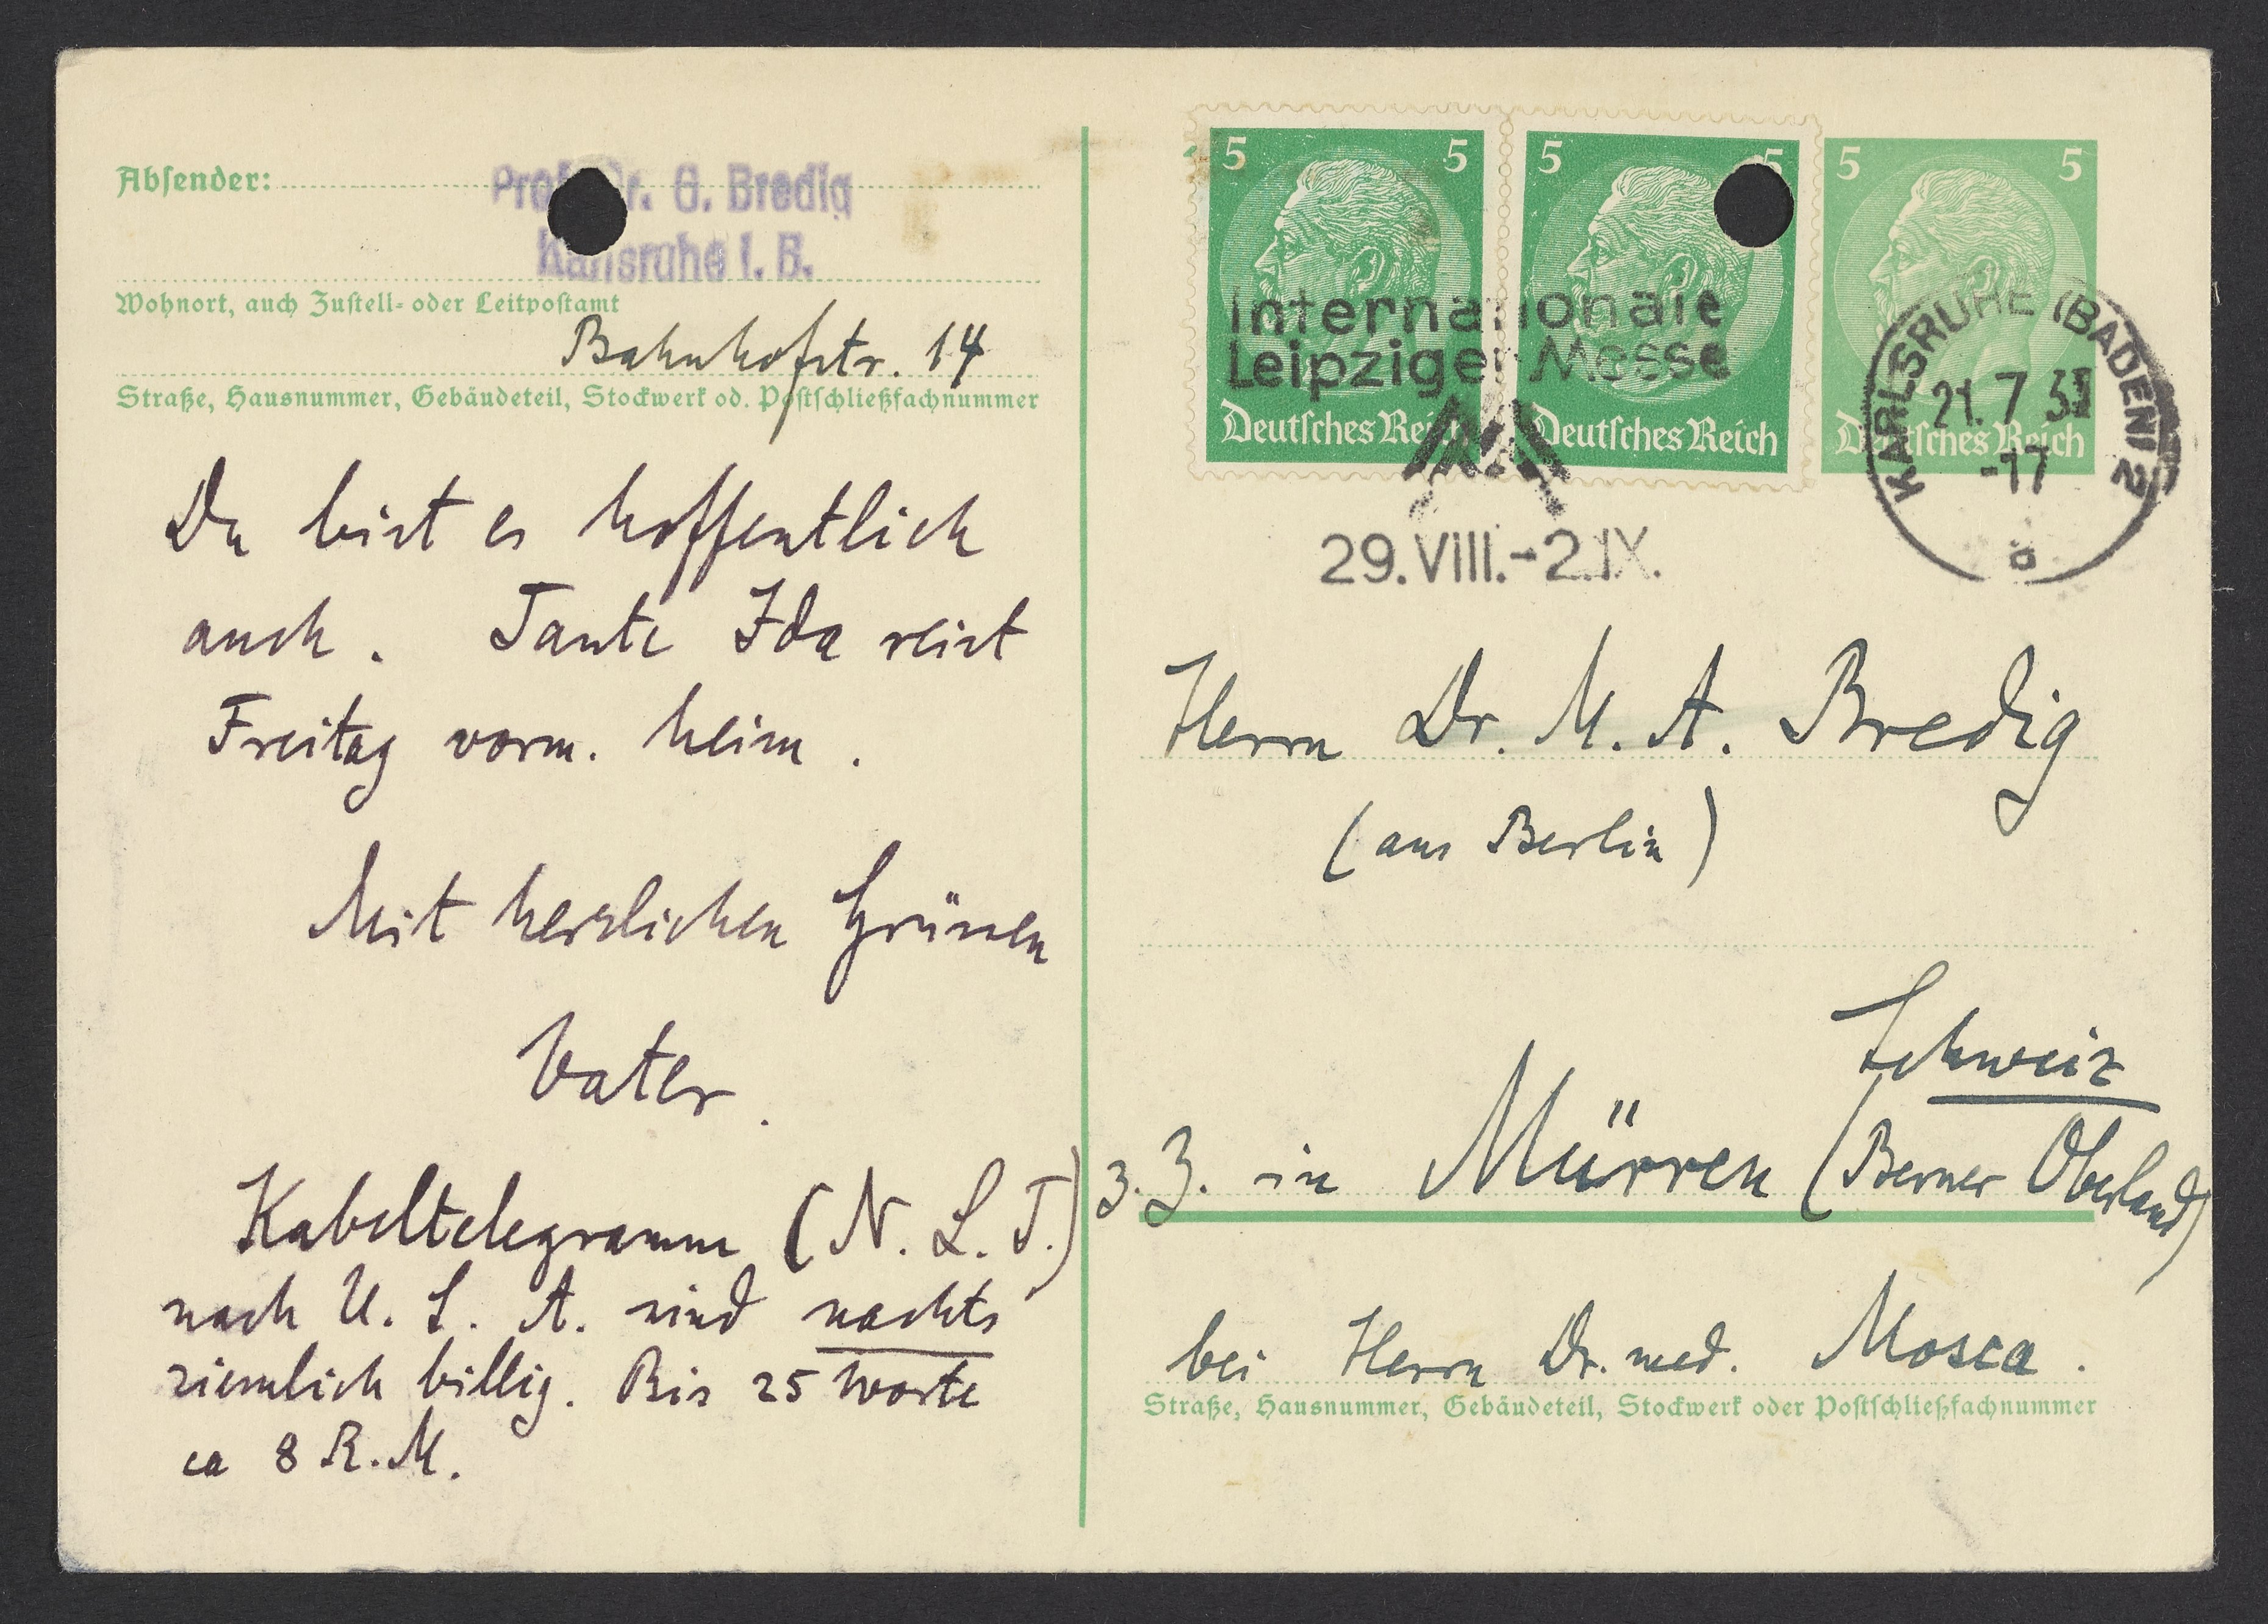 Absender:
Prof. Dr. G. Bredig
Karlsruhe i. B.
Wohnort, auch Zustell- oder Leitpostamt
Bahnhofstr. 14
Straße, Hausnummer, Gebäudeteil, Stockwerk od. Postschließfachnummer
Du bist es hoffentlich
auch. Tante Ida reist
Freitag vorm. heim.
Mit herzlichen Grüssen
Vater.
Kabeltelegramm (N. L. T.)
nach U. S. A. sind nachts
ziemlich billig. Bis 25 Worte
ca 8 R. M.
5 5 5 5 5 5
Internationale
Leipziger Messe
Deutsches Reich Deutsches Reich Deutsches Reich
29. VIII. - 2. IX.
KARLSRUHE (BADEN) 2
21. 7
-17
a
Herrn Dr. M. A. Bredig
(aus Berlin)
Schweiz
z. Z. in Mürren (Berner Oberland)
bei Herrn Dr. med. Mosca.
Straße, Hausnummer, Gebäudeteil, Stockwerk oder Postschließfachnummer